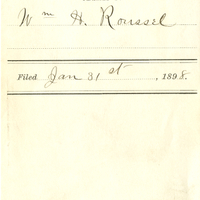 Wm H. Roussel
Filed Jan 31st, 1898.